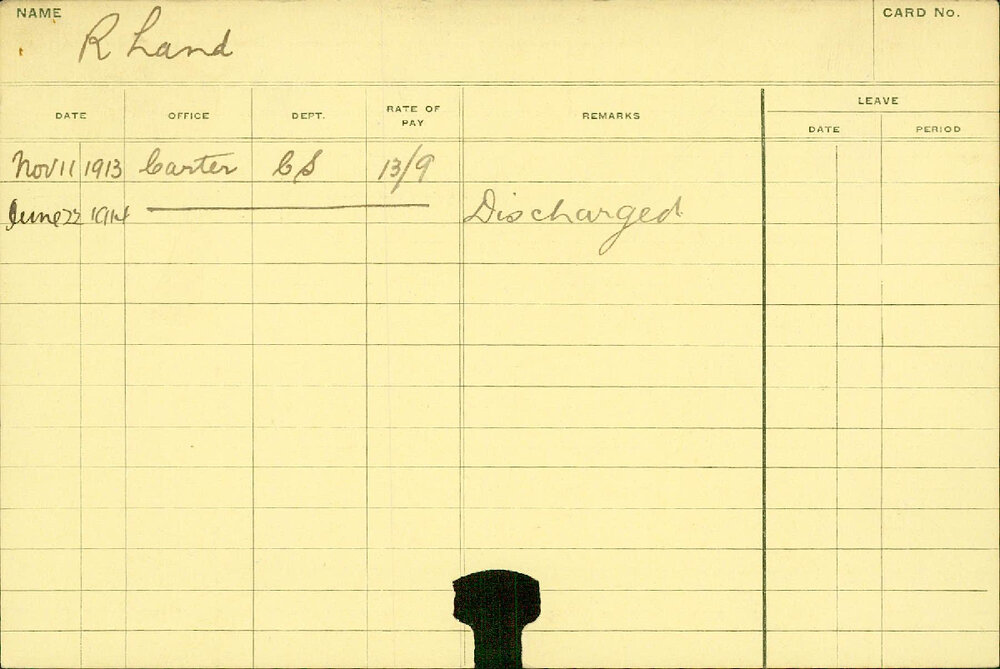 NAME
CARD No.
R Land
DATE OFFICE DEPT. RATE OF PAY REMARKS LEAVE
DATE PERIOD
Nov 11 1913 Carter CS 13/9
June 22 1914 Discharged